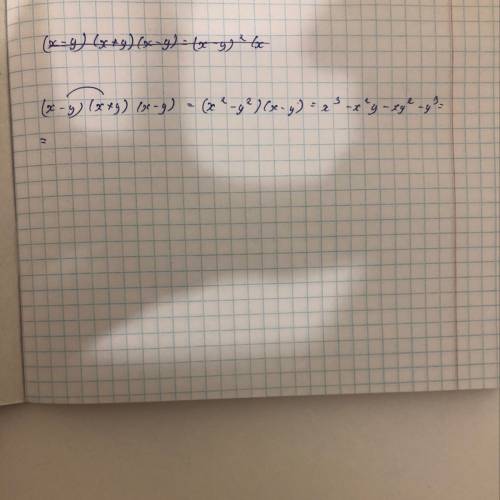 (x-y)(x+y)(x-y) = (x-y)² (x
(x-y)(x+y)(x-y) = (x²-y²)(x-y) = x³-x²y-xy²-y³=
=